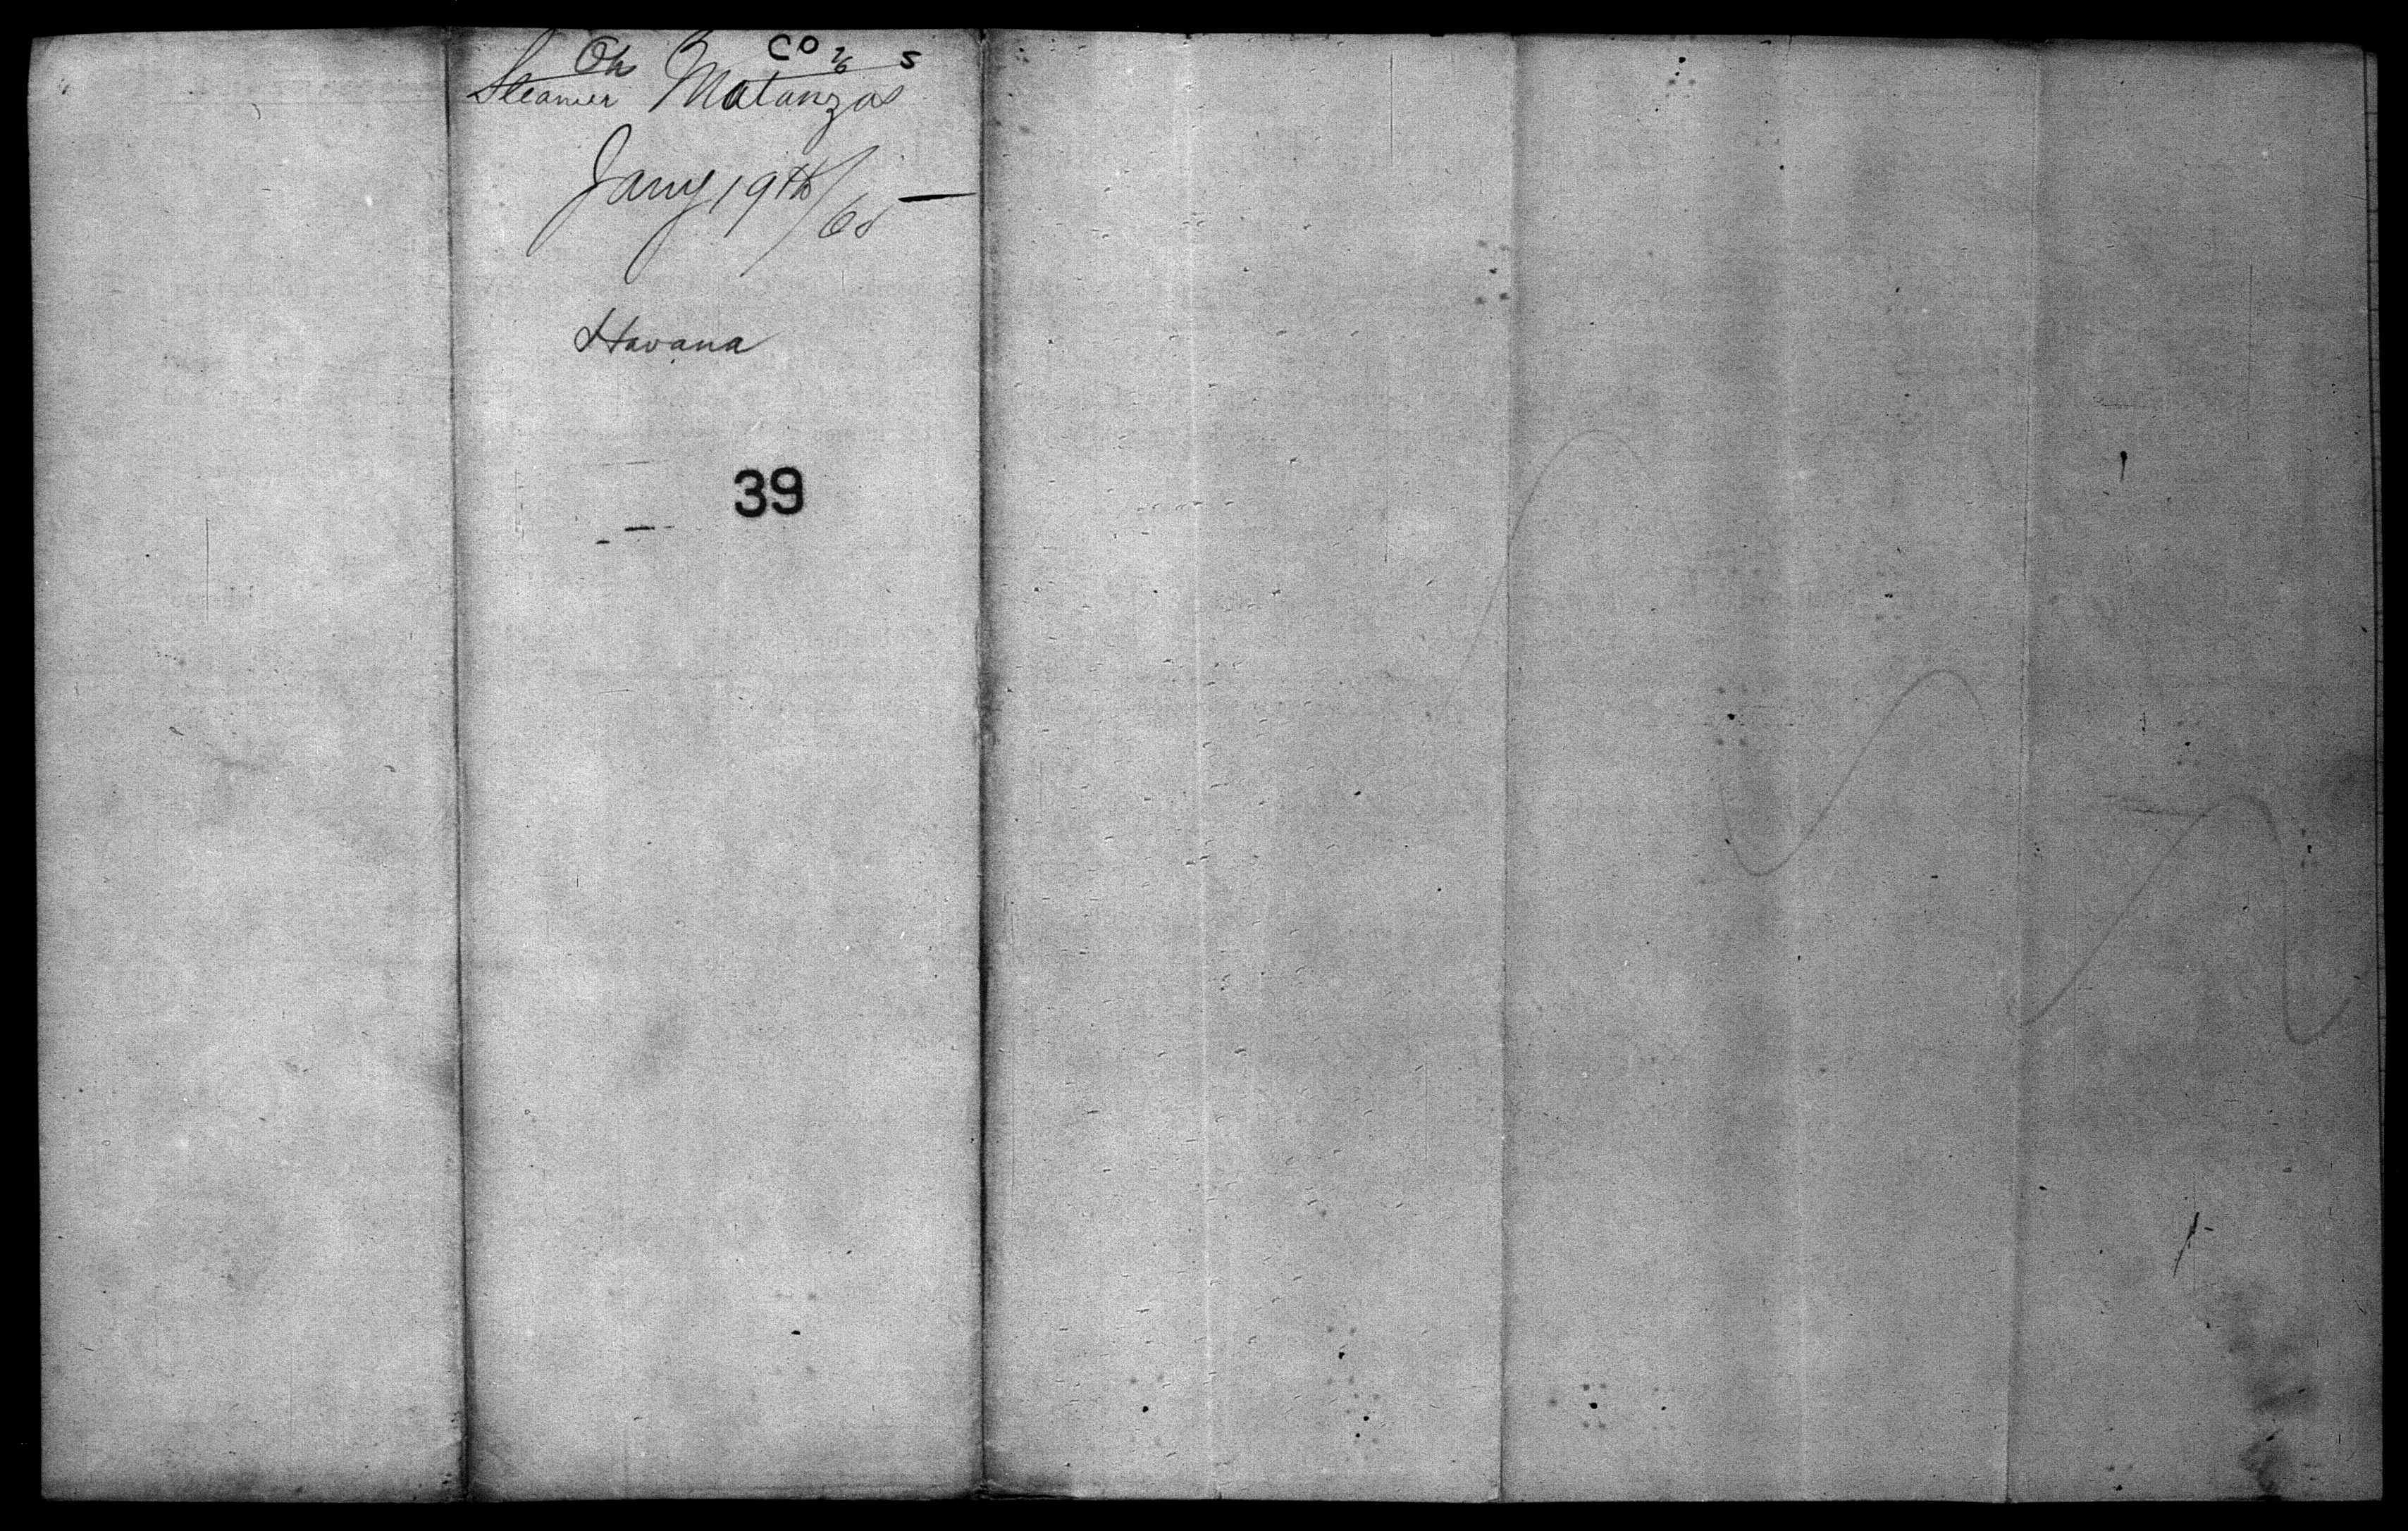 Ch CO 26 S
Steamer Matanzas
Jany 19th/65
Havana
39